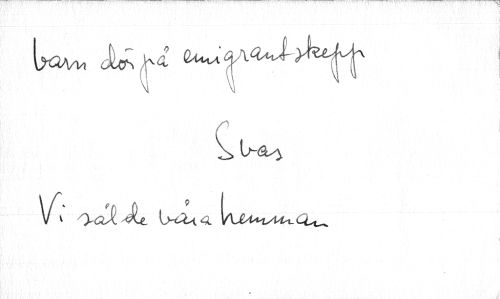 barn dör på emigrantskepp
Svas
Vi sålde våra hemman